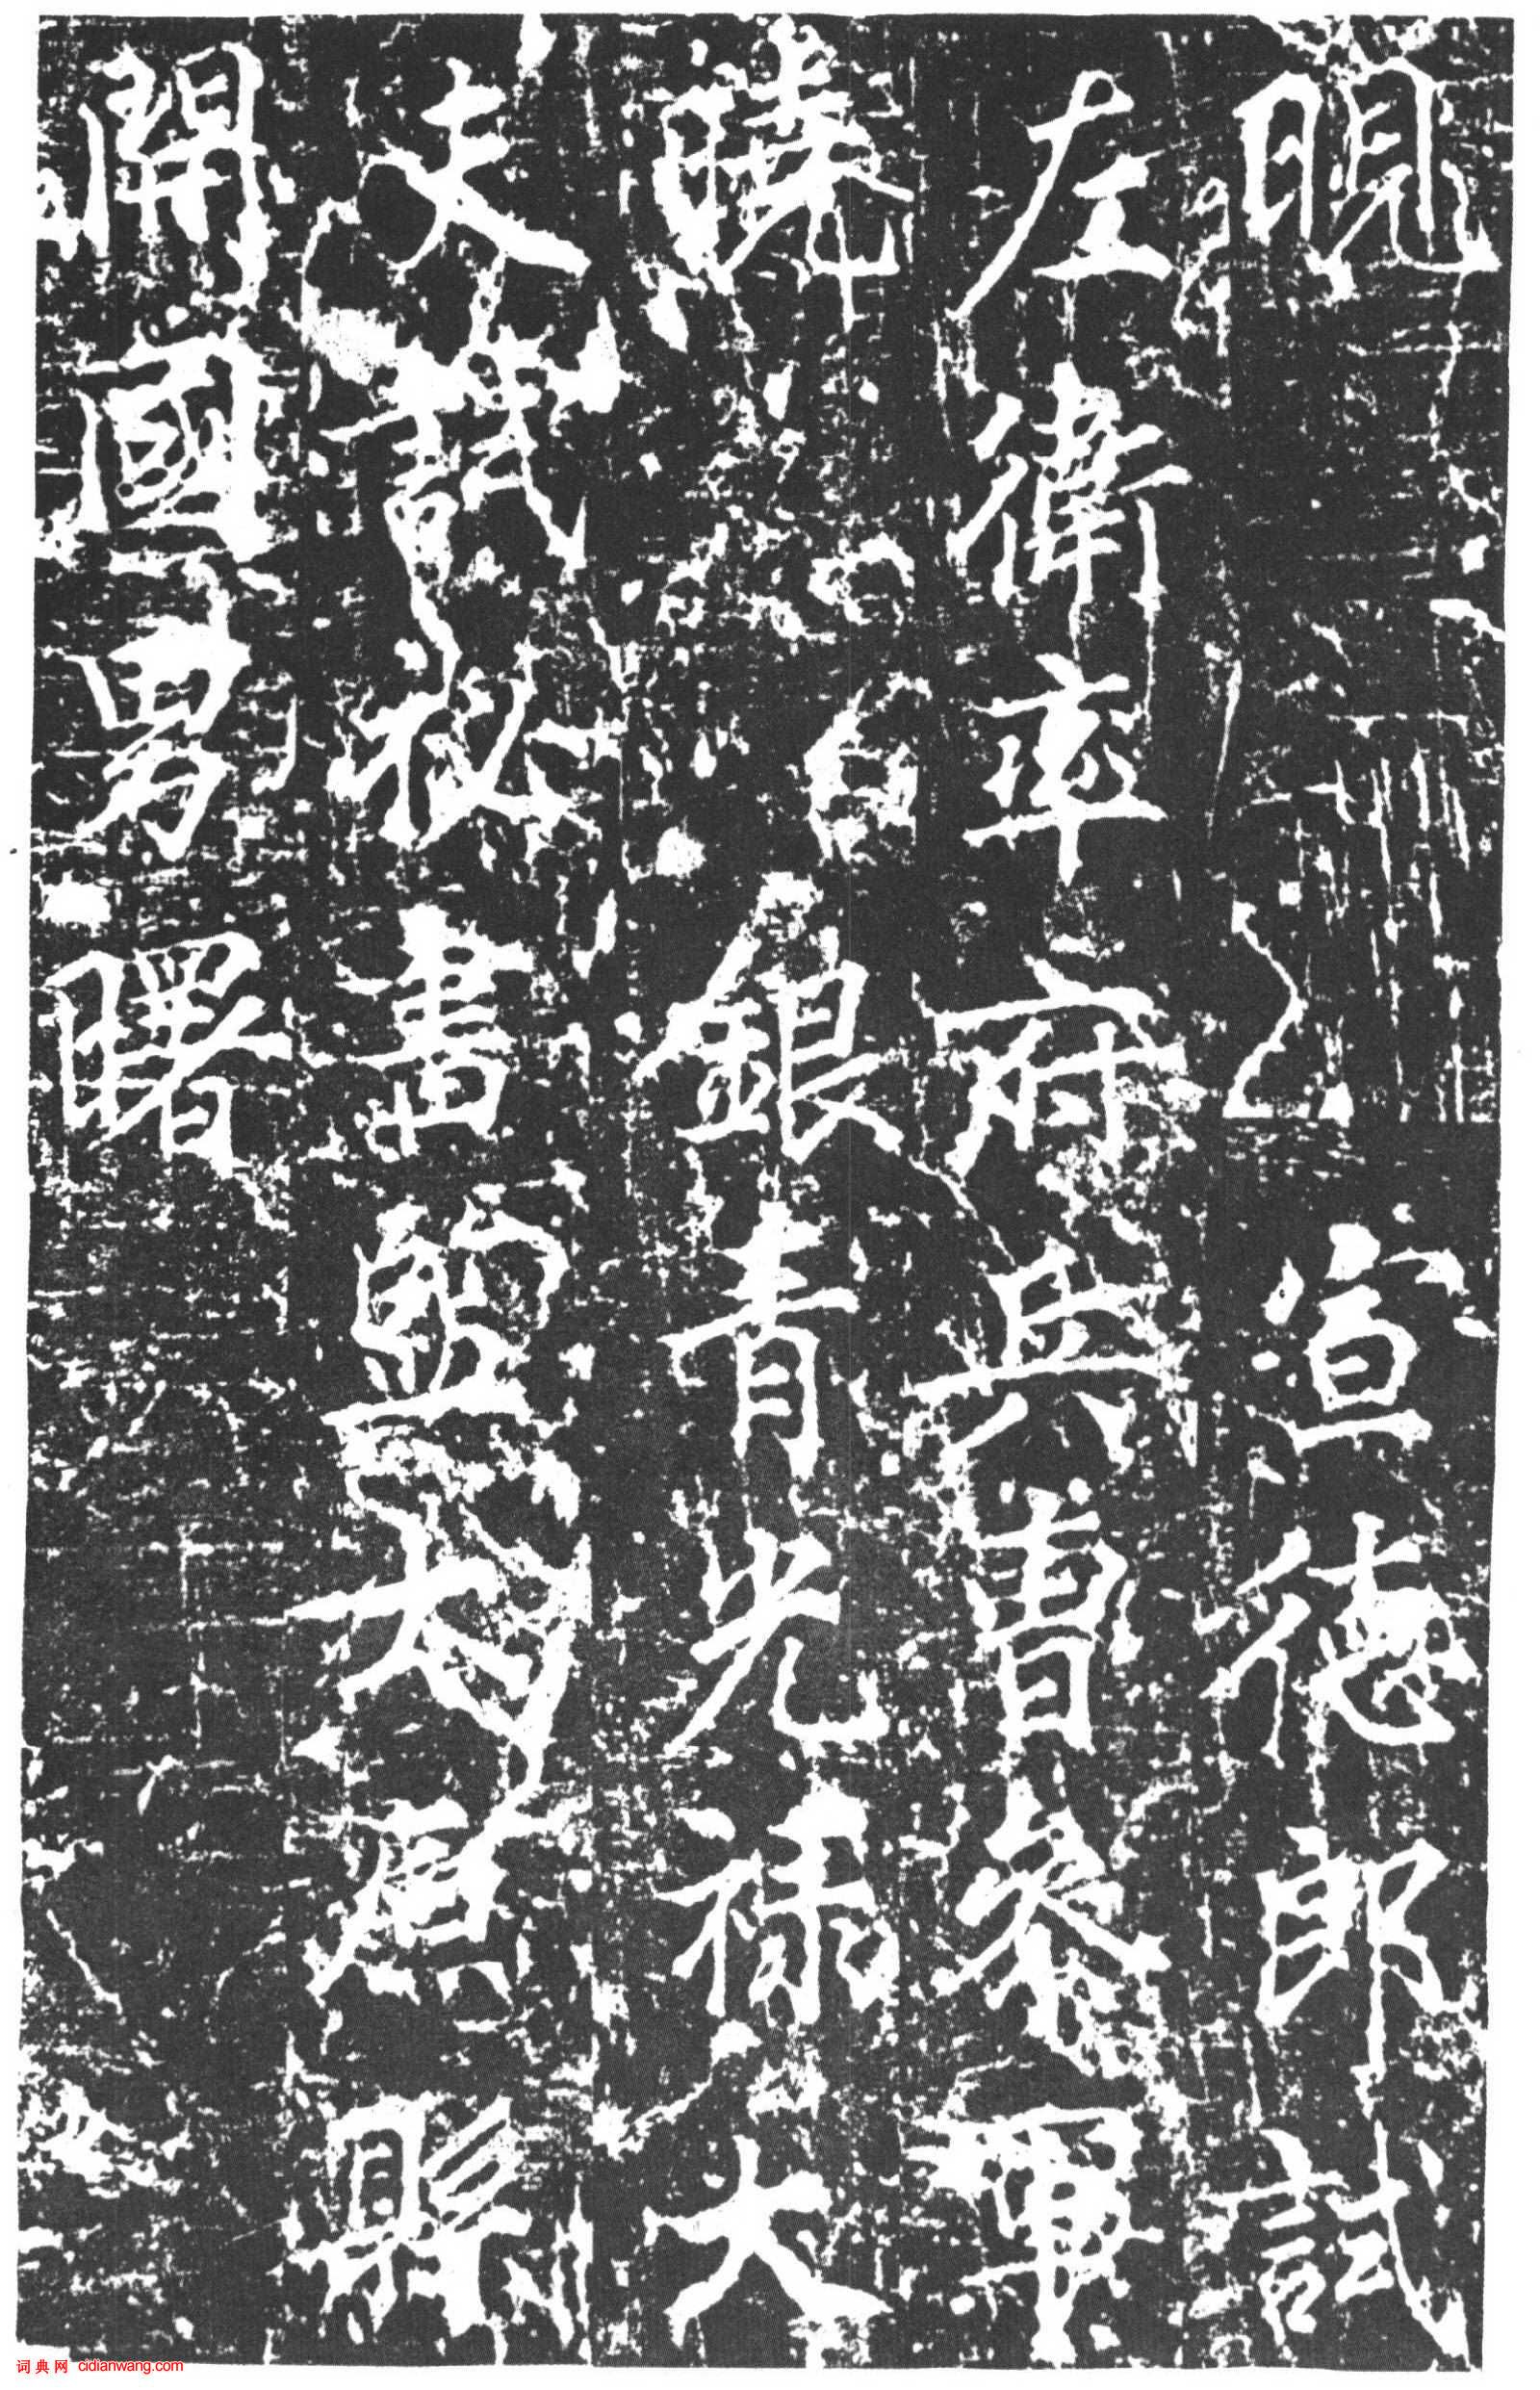 晛宣德郎試
左衛率府兵曹參軍
曉銀青光祿大
夫試秘書監太原縣
開國男曙
词典网 cidianwang.com